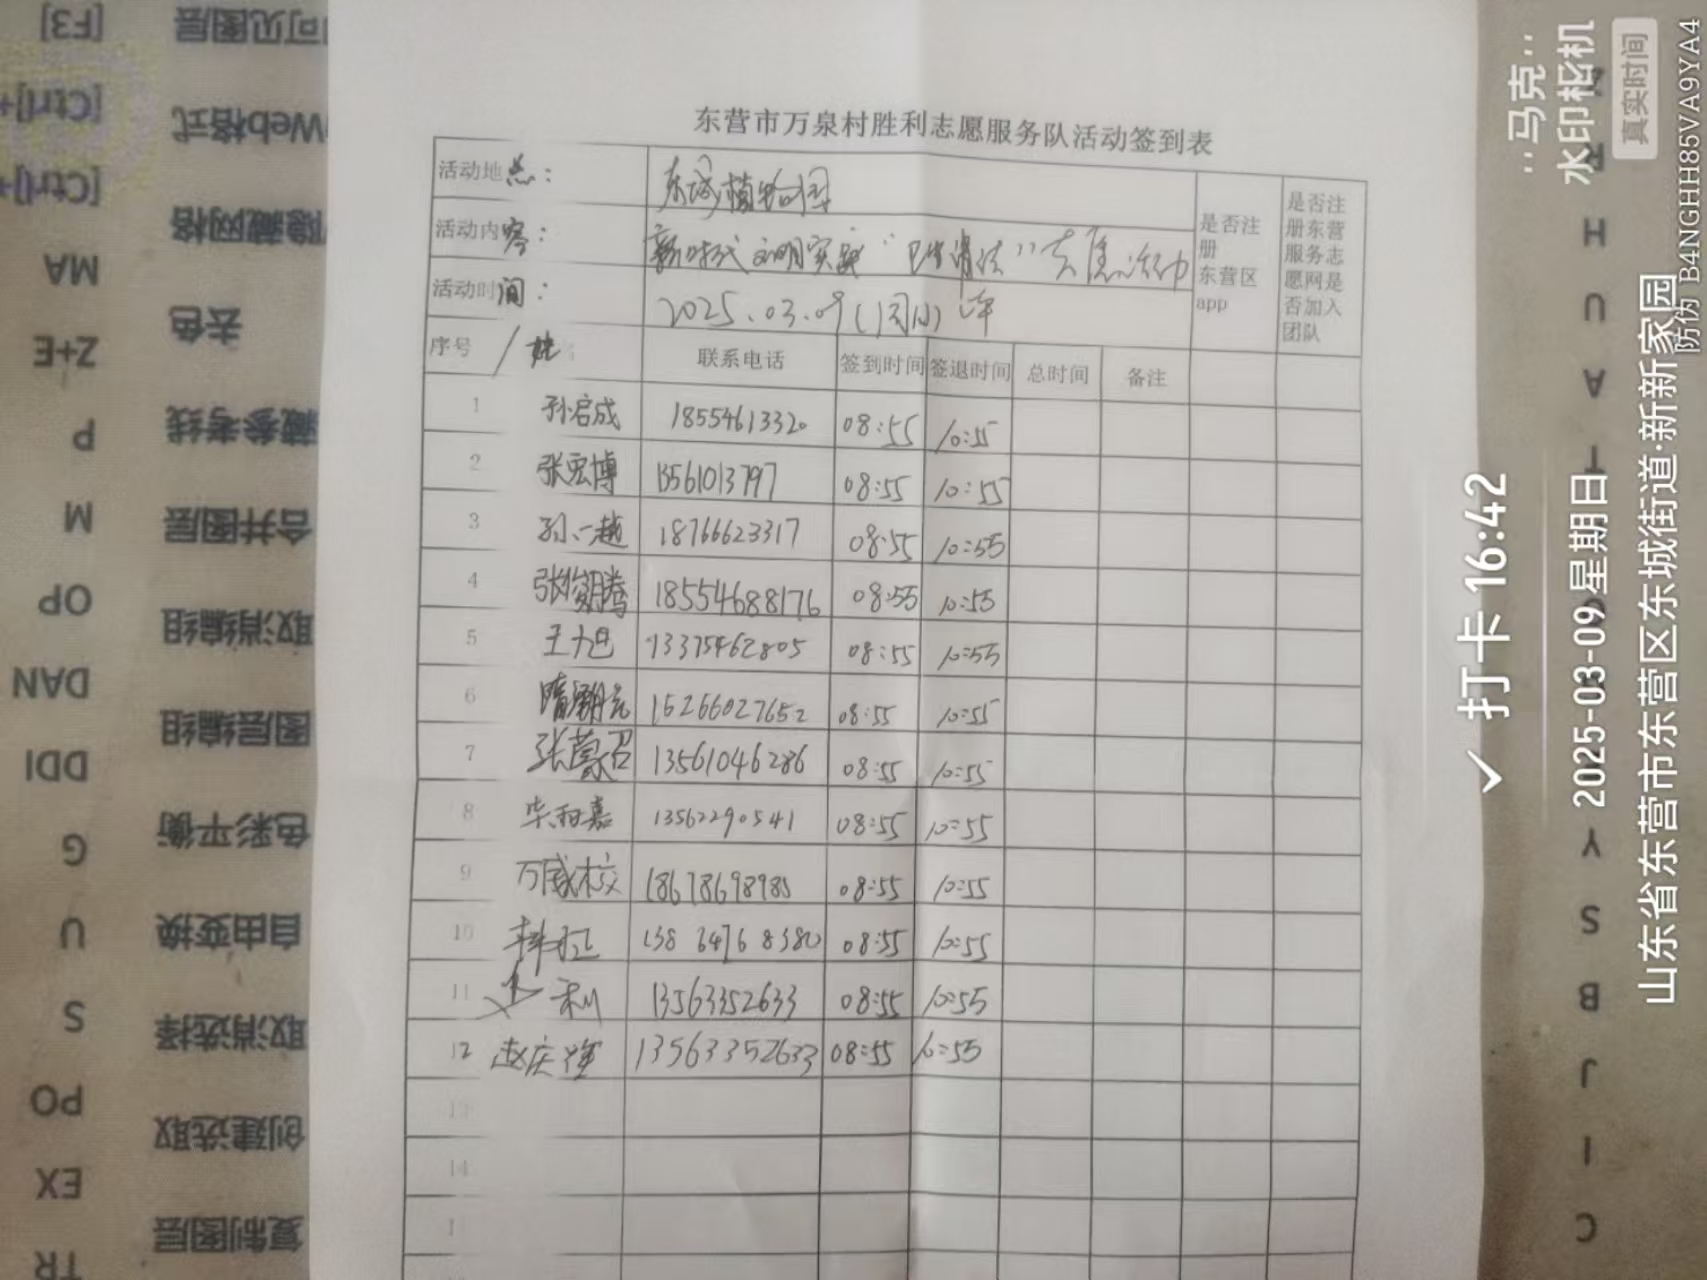 东营市万泉村胜利志愿服务队活动签到表
活动地点: 东城植物园
活动内容: 新时代文明实践"卫生清洁"志愿活动
活动时间: 2025.03.09(周日)
是否注册东营区app
是否注册东营服务志愿网是否加入团队
序号 / 姓名 联系电话 签到时间 签退时间 总时间 备注
1 孙启成 18554613320 08:55 10:55
2 张宏博 13561013797 08:55 10:55
3 孙一越 18766623317 08:55 10:55
4 张俊腾 18554688176 08:55 10:55
5 13375462805 08:55 10:55
6 15266027652 08:55 10:55
7 张蒙召 13561046286 08:55 10:55
8 毕和嘉 13562290541 08:55 10:55
9 万威校 18678698985 08:55 10:55
10 138 6476 8380 08:55 10:55
11 利 13563352633 08:55 10:55
12 赵庆理 13563352633 08:55 10:55
13
14
1
[F3] 可见图层
[Ctrl]+ Web格式
[Ctrl]+ 隐藏网格
MA 去色
Z+E 藏参考线
P 合并图层
M 取消编组
OP 图层编组
DAN 色彩平衡
DDI 自由变换
G 取消选择
U 创建选取
S 复制图层
PO
EX
TR
马克
水印相机
真实时间
防伪 B4NGHH85VA9YA4
✓ 打卡 16:42
2025-03-09 星期日
山东省东营市东营区东城街道·新新家园
H
U
A
T
Y
S
B
J
I
C